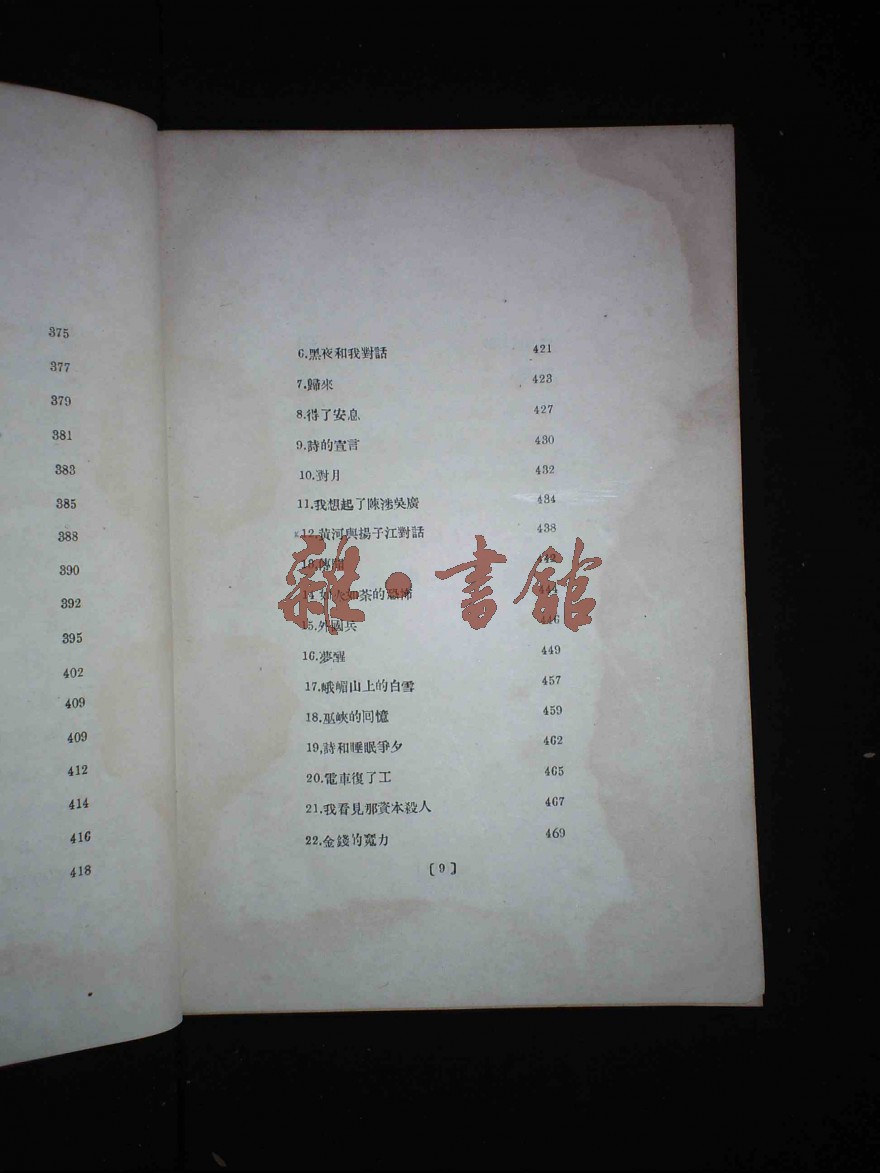 375
377
379
381
383
385
388
390
392
395
402
409
409
412
414
416
418
6.黑夜和我對話 421
7.歸來 423
8.得了安息 427
9.詩的宣言 430
10.對月 432
11.我想起了陳涉吳廣 434
12.黃河與揚子江對話 438
442
14.如火如荼的恐怖 444
15.外國兵 446
16.夢醒 449
17.峨嵋山上的白雪 457
18.巫峽的回憶 459
19.詩和睡眠爭夕 462
20.電車復了工 465
21.我看見那資本殺人 467
22.金錢的魔力 469
〔9〕
雜·書館